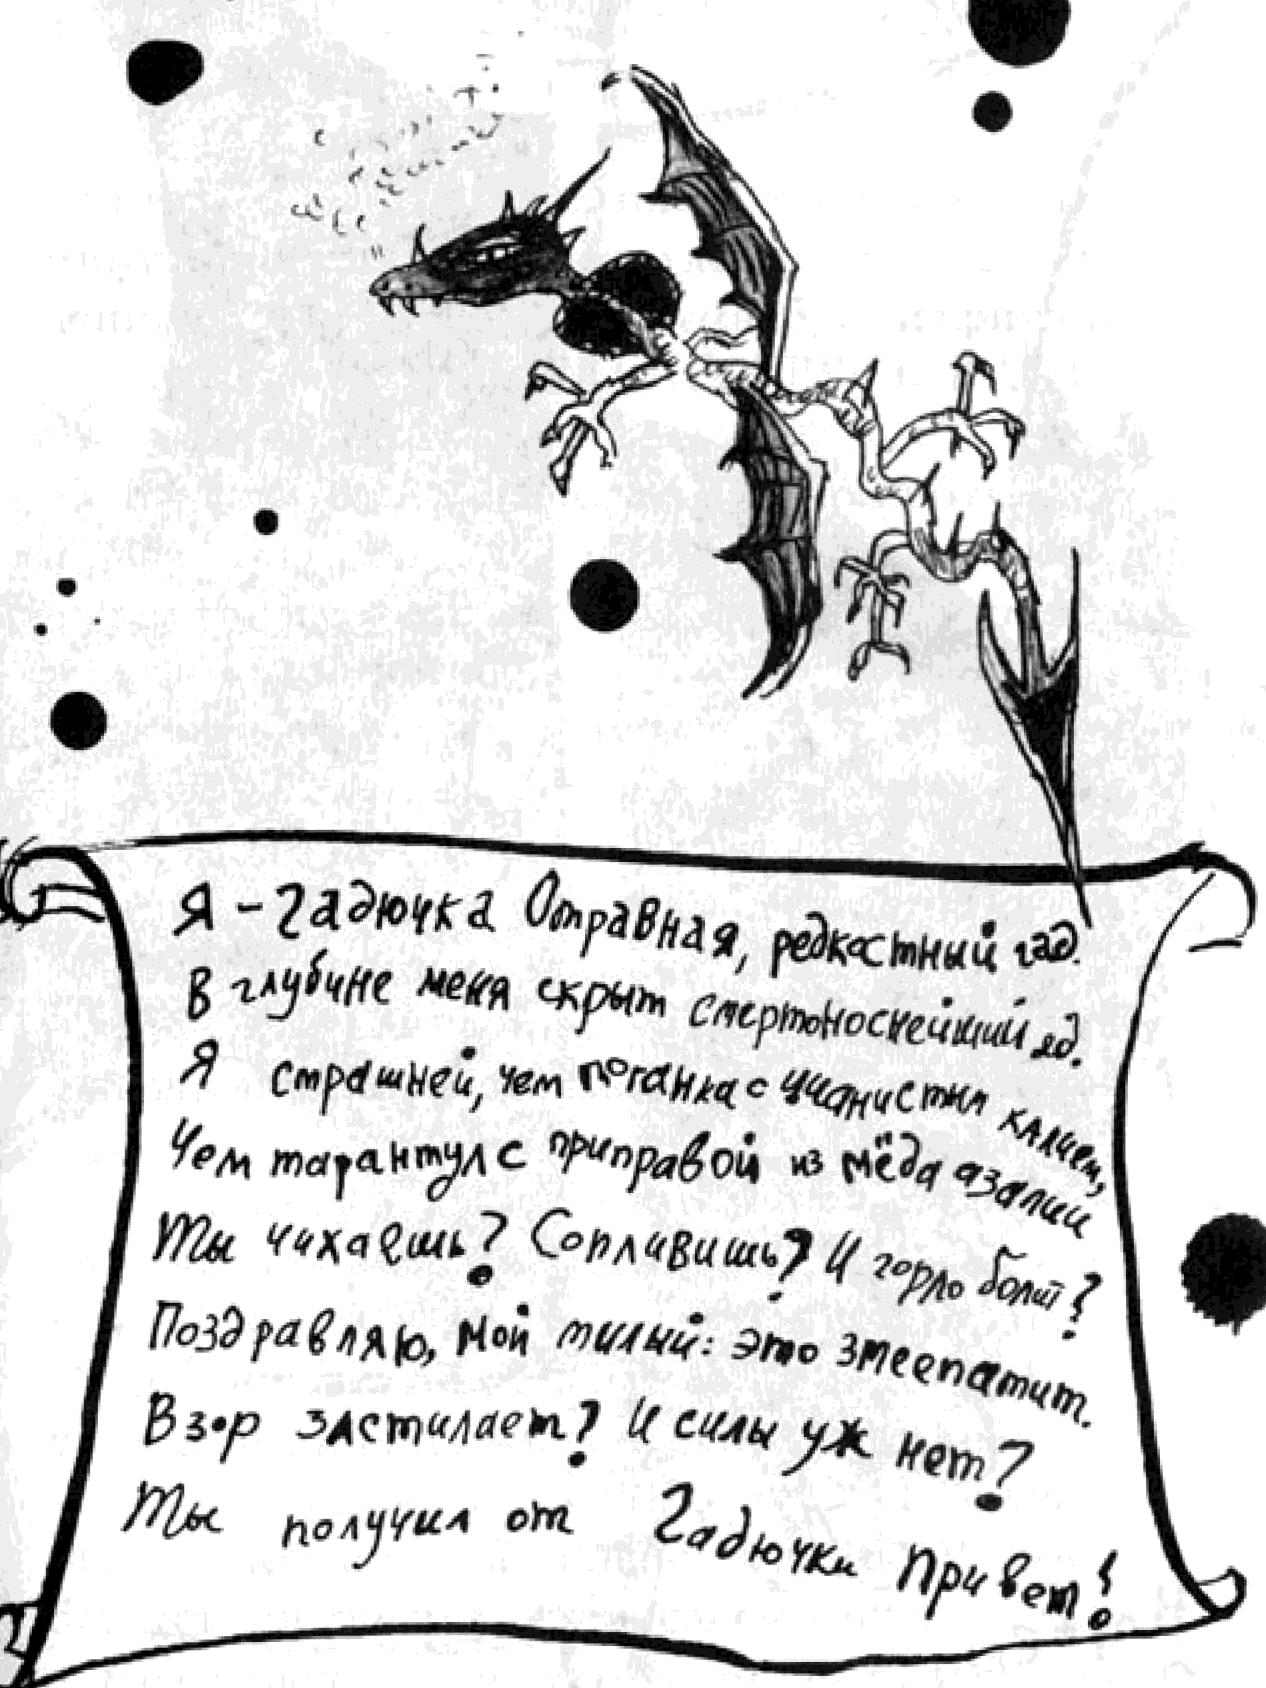 Я - Гадючка Отравная, редкостный гад.
В глубине меня скрыт смертоноснейший яд.
Я страшней, чем поганка с цианистым калием,
Чем тарантул с приправой из мёда азалии
Ты чихаешь? Сопливишь? И горло болит?
Поздравляю, мой милый: это змеепатит.
Взор застилает? И силы уж нет?
Ты получил от Гадючки Привет!